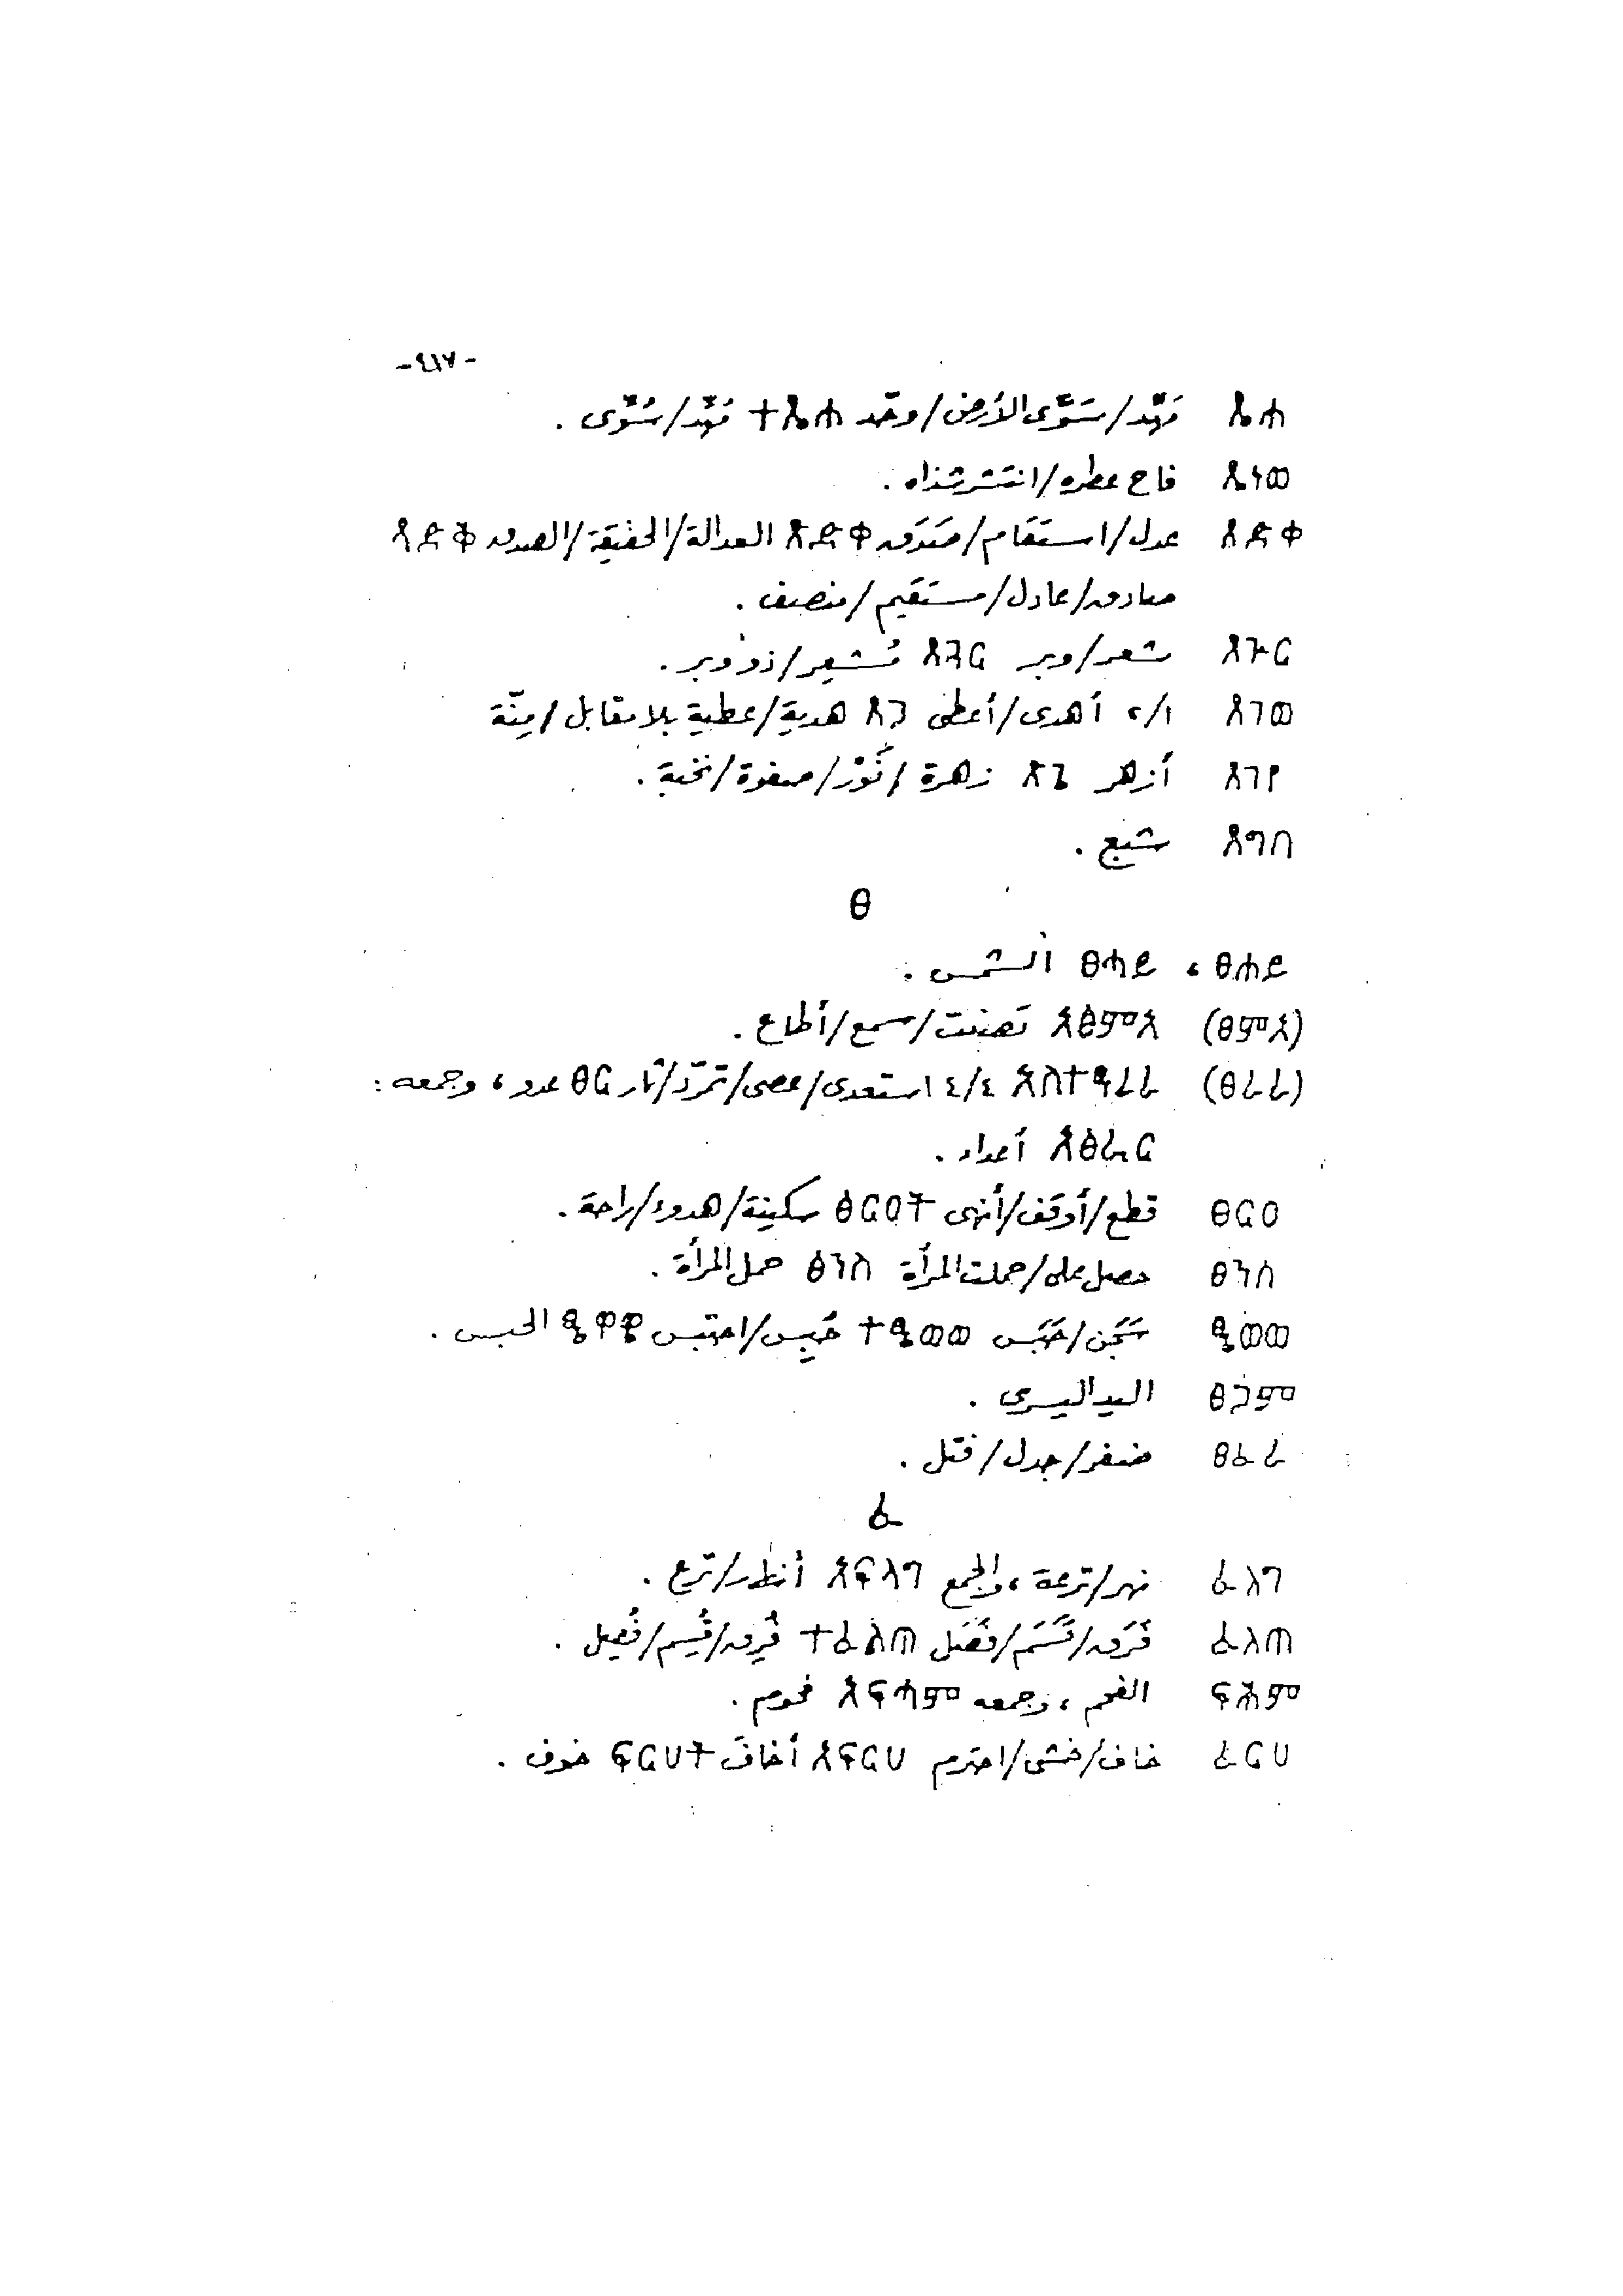 -٤١٧-
ጼሐ مَهّد/سَوَّى الأرض/وحّد ተጼሐ مُهّد/سُوّى .
ጼነወ فاح عطره/انتشر شذاه .
ጸድቀ عدل/استقام/صَدَق ጽድቅ العدالة/الحقيقة/الصدق ጻድቅ
صادق/عادل/مستقيم/منصف .
ጸጕር شعر/وبر ጸጓር مُشعِر/ذو وبر .
ጸገወ ١/٢ أهدى/أعطى ጸጋ هدية/عطية بلا مقابل/مِنّة
ጸገየ أزهر ጽጌ زهرة/نَوْر/صفوة/نخبة .
ጸግበ شبع .
ፀ
ፀሐይ ، ፀሓይ الشمس .
(ፀምአ) አፅምአ تصنت/سمع/أطاع .
(ፀረረ) አስተፃረረ ٤/٤ استعدى/عصى/تمرّد/ثار ፀር عدو ، وجمعه :
አፅራር أعداء .
ፀርዐ قطع/أوقف/أنهى ፅርዐት سكينة/هدوء/راحة .
ፀንሰ حصل على/حملت المرأة ፅንስ حمل المرأة .
ፄወወ سَجَن/حَبَس ተፄወወ حُبِس/احتبس ፄዋዌ الحبس .
ፀጋም اليد اليسرى .
ፀፈረ ضفر/جدل/فتل .
ፈ
ፈለግ نهر/ترعة ، والجمع አፍላግ أنهار/ترع .
ፈለጠ فَرَق/قَسَّم/فَصَل ተፈልጠ فُرِق/قُسِّم/فُصِل .
ፍሕም الفحم ، وجمعه አፍሓም فحوم .
ፈርሀ خاف/خشى/احترم አፍርሀ أخاف ፍርሀት خوف .